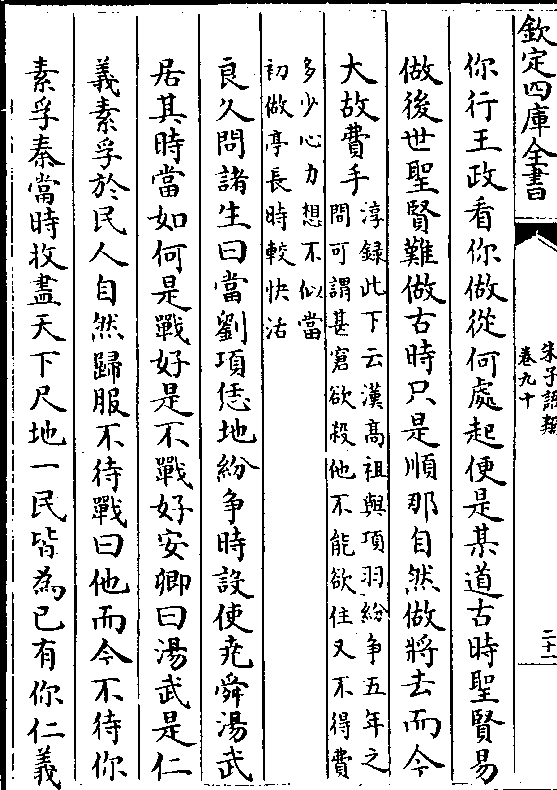 欽定四庫全書
朱子語類
卷九十
二十一
你行王政看你做從何處起便是某道古時聖賢易
做後世聖賢難做古時只是順那自然做將去而今
大故費手
淳録此下云漢高祖與項羽紛争五年之
間可謂甚窘欲殺他不能欲住又不得費
多少心力想不似當
初做亭長時較快活
良久問諸生曰當劉項恁地紛争時設使堯舜湯武
居其時當如何是戰好是不戰好安卿曰湯武是仁
義素孚於民人自然歸服不待戰曰他而今不待你
素孚秦當時收盡天下尺地一民皆為已有你仁義